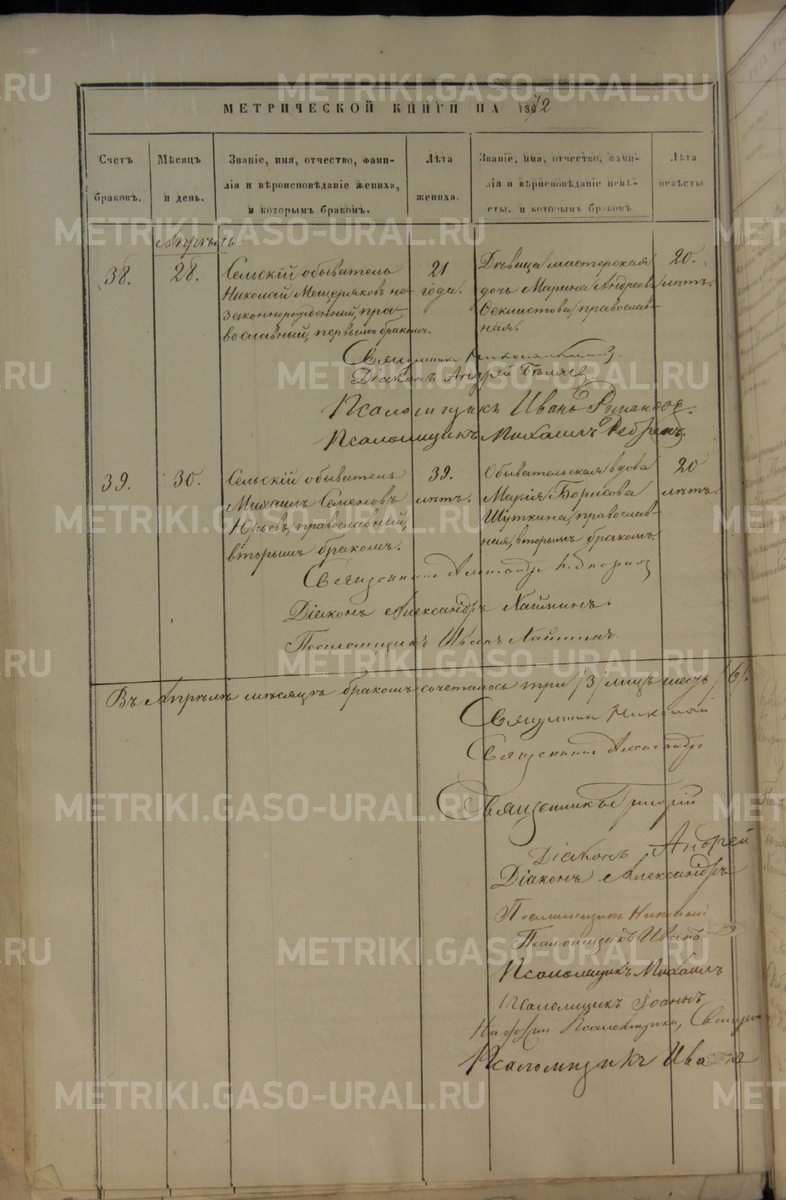 МЕТРИЧЕСКОЙ КНИГИ НА 1872
Счетъ браковъ.
Мѣсяцъ и день.
Званіе, имя, отчество, фами-
лія и вѣроисповѣданіе жениха,
и которымъ бракомъ.
Лѣта жениха.
Званіе, имя, отчество, фами-
лія и вѣрисповѣданіе невѣ-
сты, и которымъ бракомъ.
Лѣта невѣсты
Апрѣль
38.
28.
Сельскій обыватель
Николай Мещеряковъ не-
законнорожденный, пра-
вославный, первымъ бракомъ.
21
года.
Дѣвица мастерская
дочь Марина Андреева
Феклистова, православ-
ная.
20.
лѣтъ.
Священникъ
Діаконъ Андрей
Псаломщикъ Иванъ
Псаломщикъ Михаилъ
39.
30.
Сельскій обыватель
Михаилъ Семеновъ
православный,
вторымъ бракомъ.
39.
лѣтъ.
Обывательская вдова
Марія Борисова
Шуткина, православ-
ная, вторымъ бракомъ
20
лѣтъ.
Священникъ Александръ
Діаконъ Александръ
Псаломщикъ
Въ Апрѣлѣ мѣсяцѣ бракомъ сочеталось три /3/ лицъ шесть /6/.
Священникъ Николай
Священникъ Александръ
Священникъ Григорій
Діаконъ Андрей
Діаконъ Александръ
Псаломщикъ
Псаломщикъ Иванъ
Псаломщикъ Михаилъ
Псаломщикъ Іоаннъ
Псаломщика,
Псаломщикъ Иванъ
METRIKI.GASO-URAL.RU